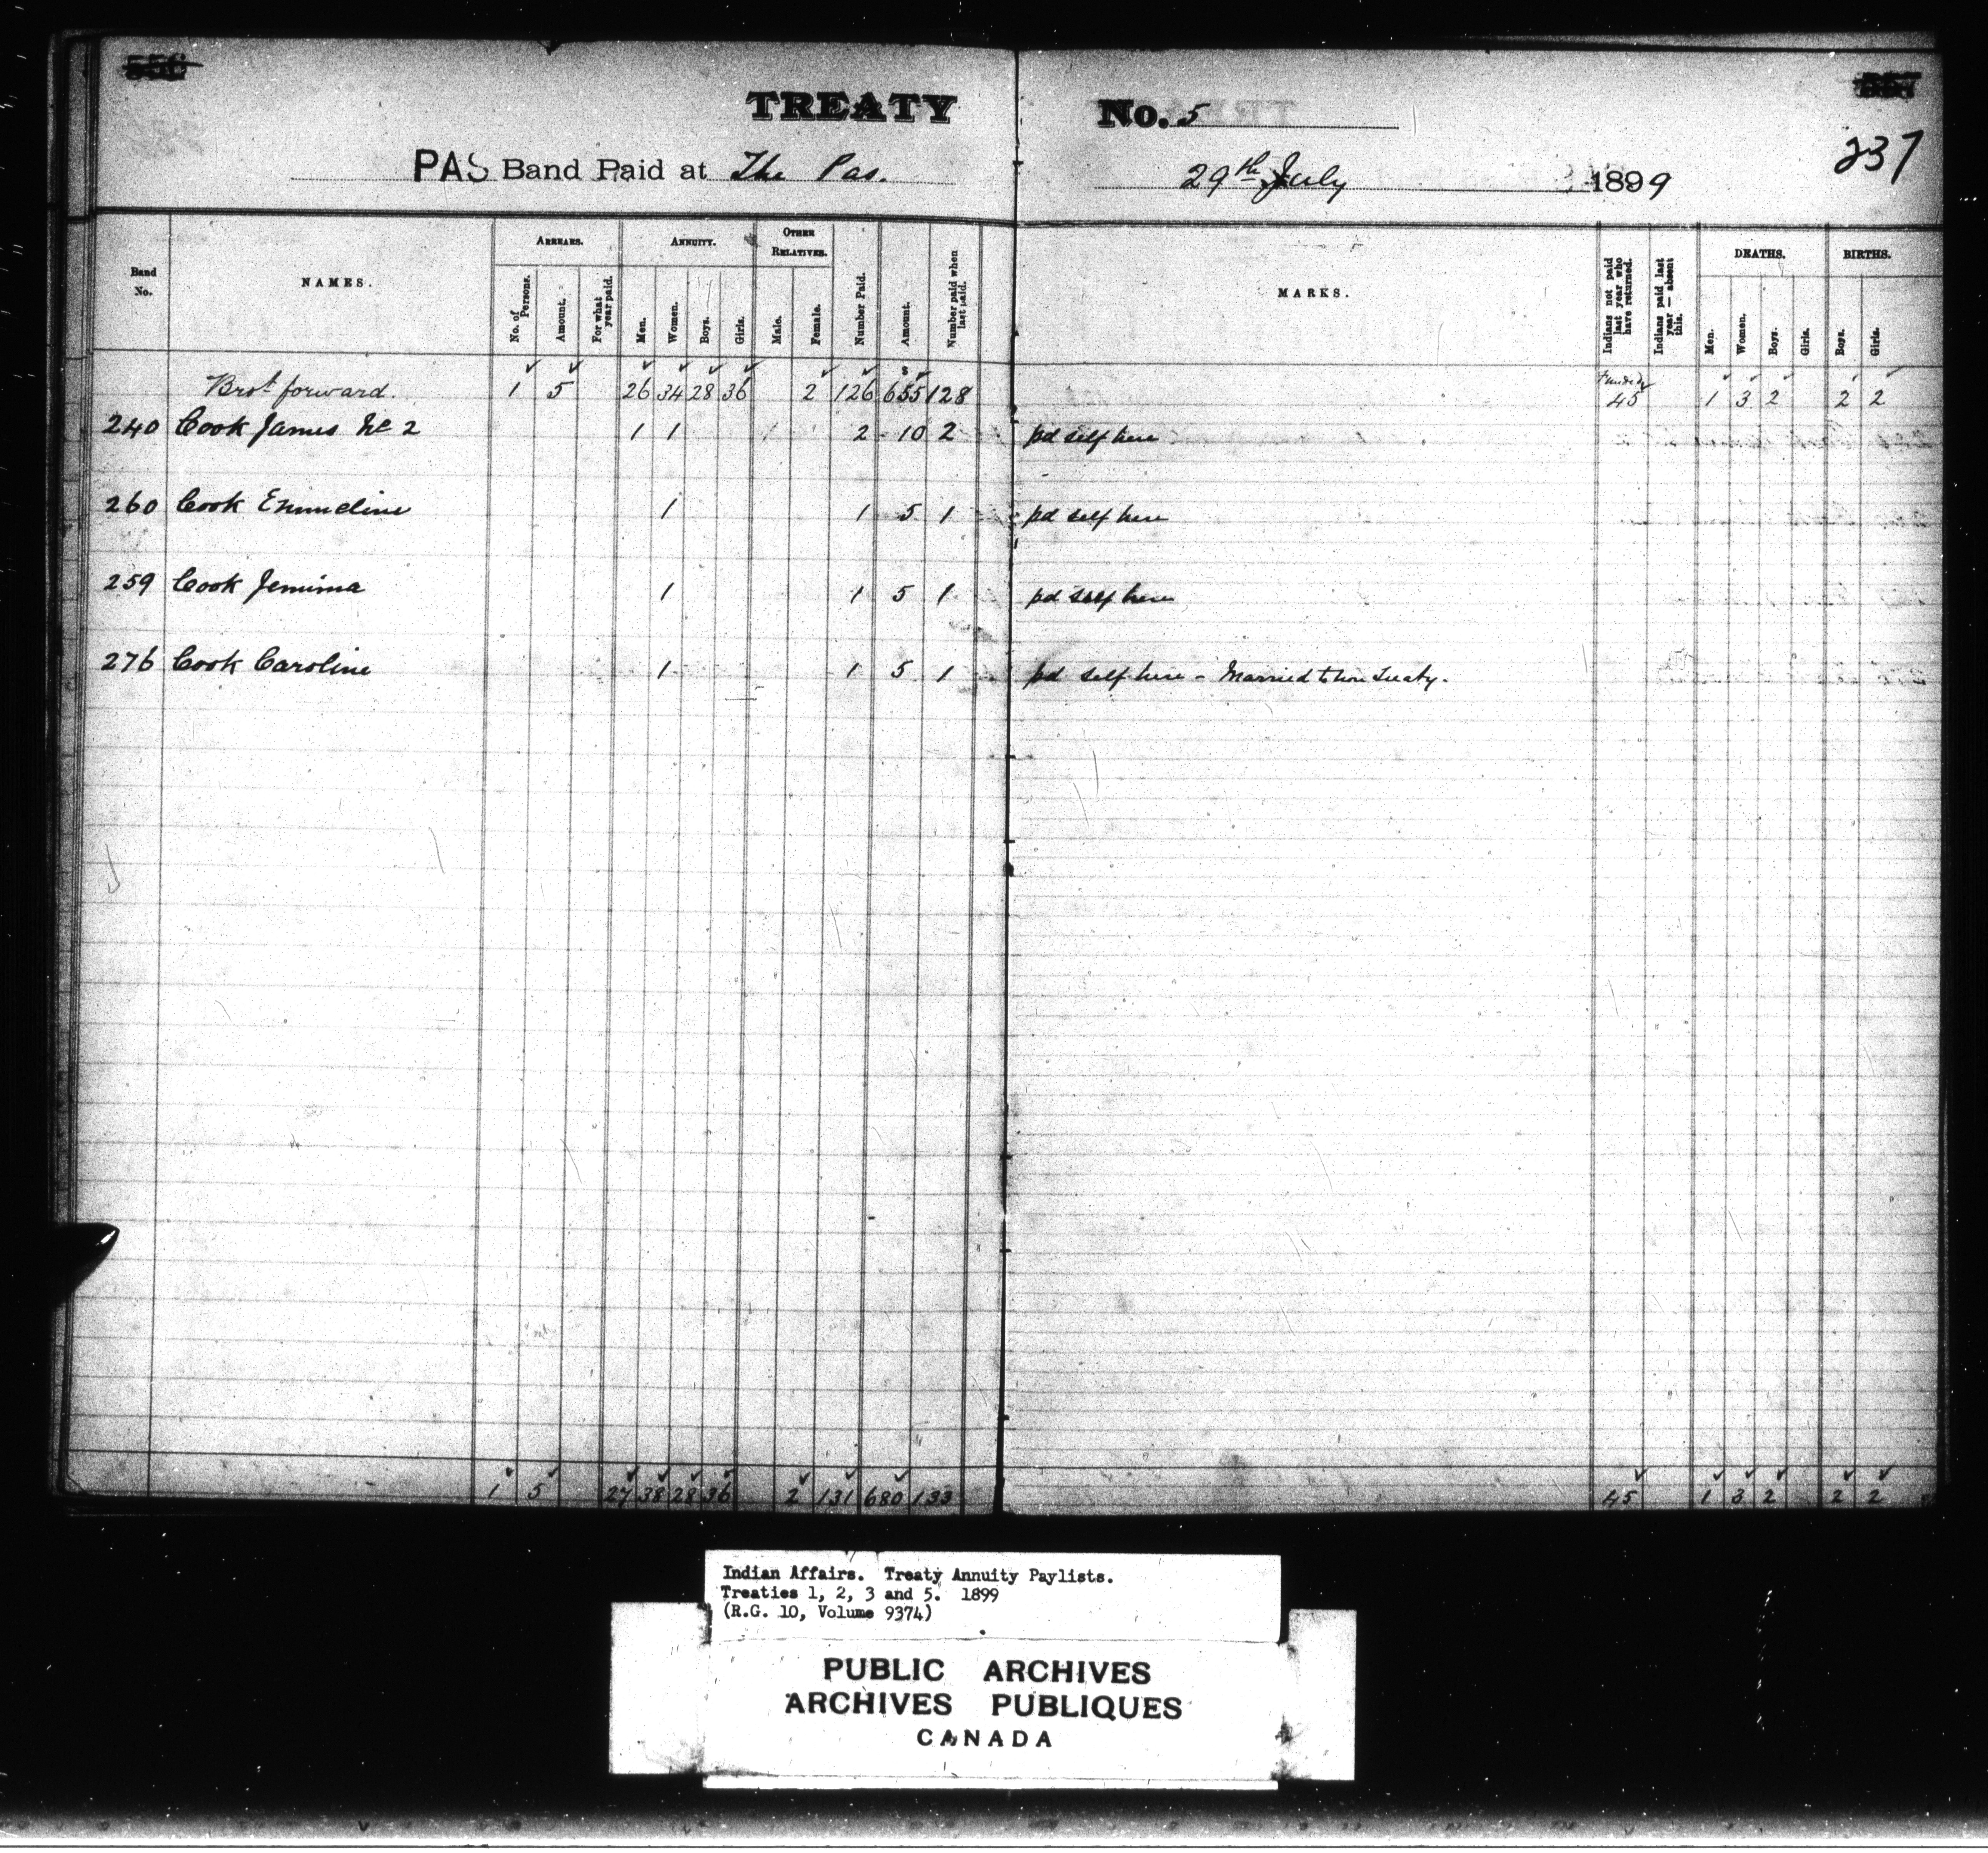 TREATY No. 5
237
PAS Band Paid at The Pas. 29th July 1899
Band No.
NAMES.
ARREARS.
No. of Persons.
Amount.
For what year paid.
ANNUITY.
Men.
Women.
Boys.
Girls.
OTHER RELATIVES.
Male.
Female.
Number Paid.
Amount.
Number paid when last paid.
MARKS.
Indians not paid last year who have returned.
Indians paid last year — absent this.
DEATHS.
Men.
Women.
Boys.
Girls.
BIRTHS.
Boys.
Girls.
Brot forward. 1 5 26 34 28 36 2 126 $655 128 45 1 3 2 2 2
240 Cook James No 2 1 1 2 10 2 pd self here
260 Cook Emmeline 1 1 5 1 pd self here
259 Cook Jemima 1 1 5 1 pd self here
276 Cook Caroline 1 1 5 1 pd self here - Married to Non Treaty.
1 5 27 38 28 36 2 131 680 133 45 1 3 2 2 2
Indian Affairs. Treaty Annuity Paylists.
Treaties 1, 2, 3 and 5. 1899
(R.G. 10, Volume 9374)
PUBLIC ARCHIVES
ARCHIVES PUBLIQUES
CANADA